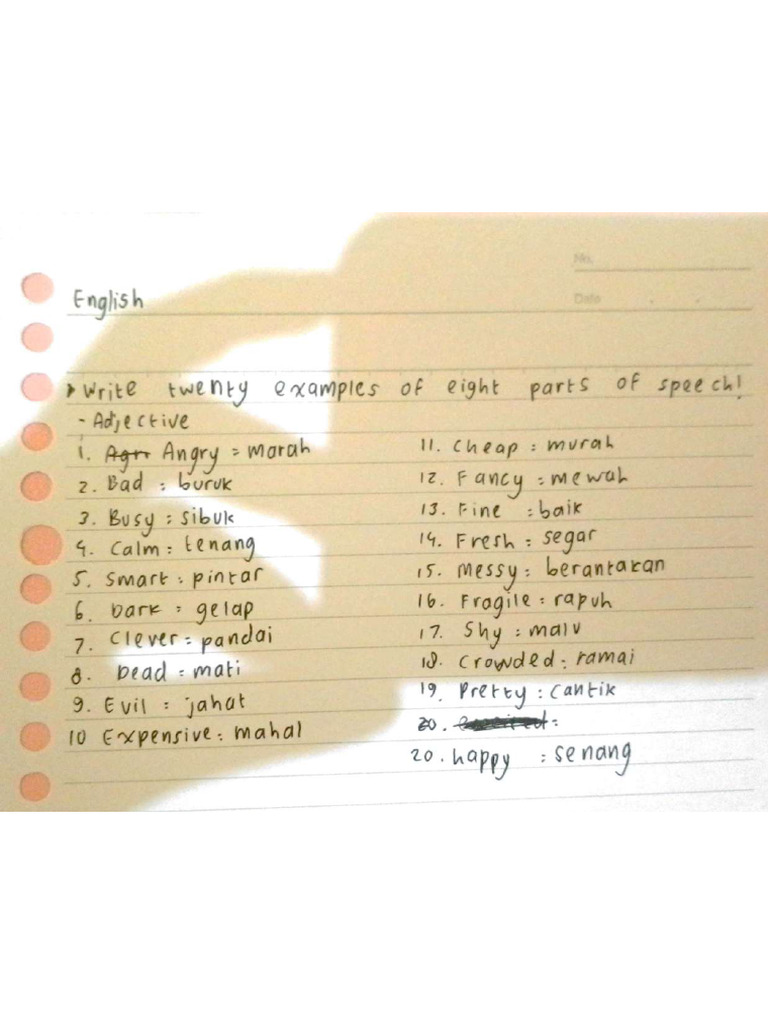 No.
Date
English
▸ Write twenty examples of eight parts of speech!
- Adjective
1. Agr Angry = marah
2. Bad : buruk
3. Busy : sibuk
4. Calm : tenang
5. Smart : pintar
6. Dark : gelap
7. Clever = pandai
8. Dead = mati
9. Evil : jahat
10 Expensive : mahal
11. Cheap : murah
12. Fancy : mewah
13. Fine : baik
14. Fresh : segar
15. Messy : berantakan
16. Fragile : rapuh
17. Shy : malu
18. Crowded : ramai
19. Pretty : Cantik
20. :
20. happy : senang